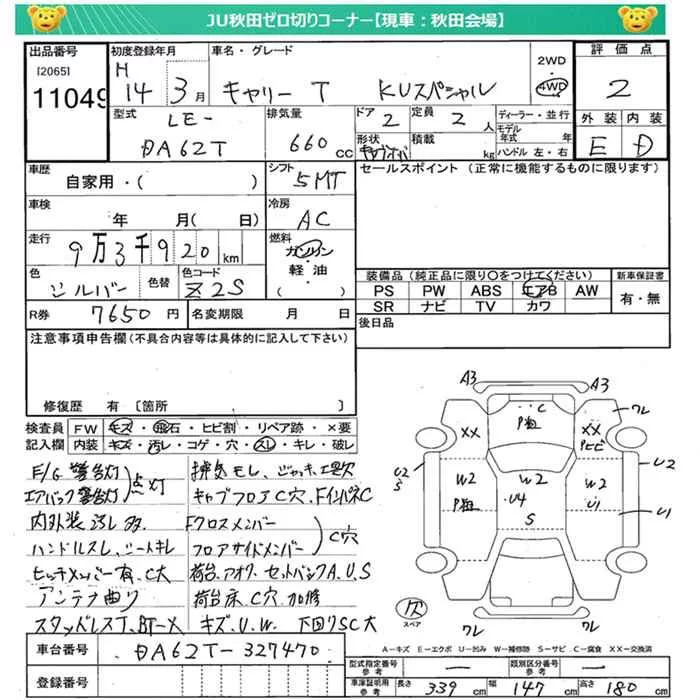 JU秋田ゼロ切りコーナー【現車：秋田会場】
出品番号 初度登録年月 車名・グレード 2WD 評価点
[2065] 11049 H 14年 3月 キャリー T KUスペシャル 4WD 2
型式 排気量 ドア 定員 ディーラー・並行 外装 内装
LE-DA62T 660cc 2 2人 モデル年式 年 E D
形状 積載 kg ハンドル 左・右
車歴 シフト セールスポイント（正常に機能するものに限ります）
自家用・( ) 5MT
車検 冷房
年 月(日) AC
走行 燃料
9万3千920km ガソリン 軽油 ( )
色 色替 色コード 装備品（純正品に限り〇をつけてください） 新車保証書
シルバー Z2S PS PW ABS エアB AW 有・無
SR ナビ TV カワ
R券 7650円 名変期限 月 日 後日品
注意事項申告欄（不具合内容等は具体的に記入して下さい）
修復歴 有 〔箇所 〕
検査員記入欄 FW キズ・飛石・ヒビ割・リペア跡・×要
内装 キズ・汚レ・コゲ・穴・スレ・キレ・破レ
E/G警告灯
エアバック警告灯 点灯
内外装汚レ多
ハンドルスレ、シートキレ
ヒッチメンバー有、C大
アンテナ曲り
スタッドレスT、BT-X
排気モレ、ジャッキ、工具欠
キャブフロアC穴、FインパネC
Fクロスメンバー
フロアサイドメンバー C穴
荷台、アオリ、セットバックA、U、S
荷台床、C穴、加修
キズ、U、W、下回りSC大
A3 A3
C ワレ
XX P XX
Pヒビ
U2 S W2 P W2 W2 U2
U4 U1 U1
S
スペア ワレ ワレ
A－キズ E－エクボ U－凹み W－補修跡 S－サビ C－腐食 XX－交換済
車台番号 DA62T-327470
登録番号
型式指定番号 － 類別区分番号 －
車庫証明用参考 長さ 339cm 幅 147cm 高さ 180cm